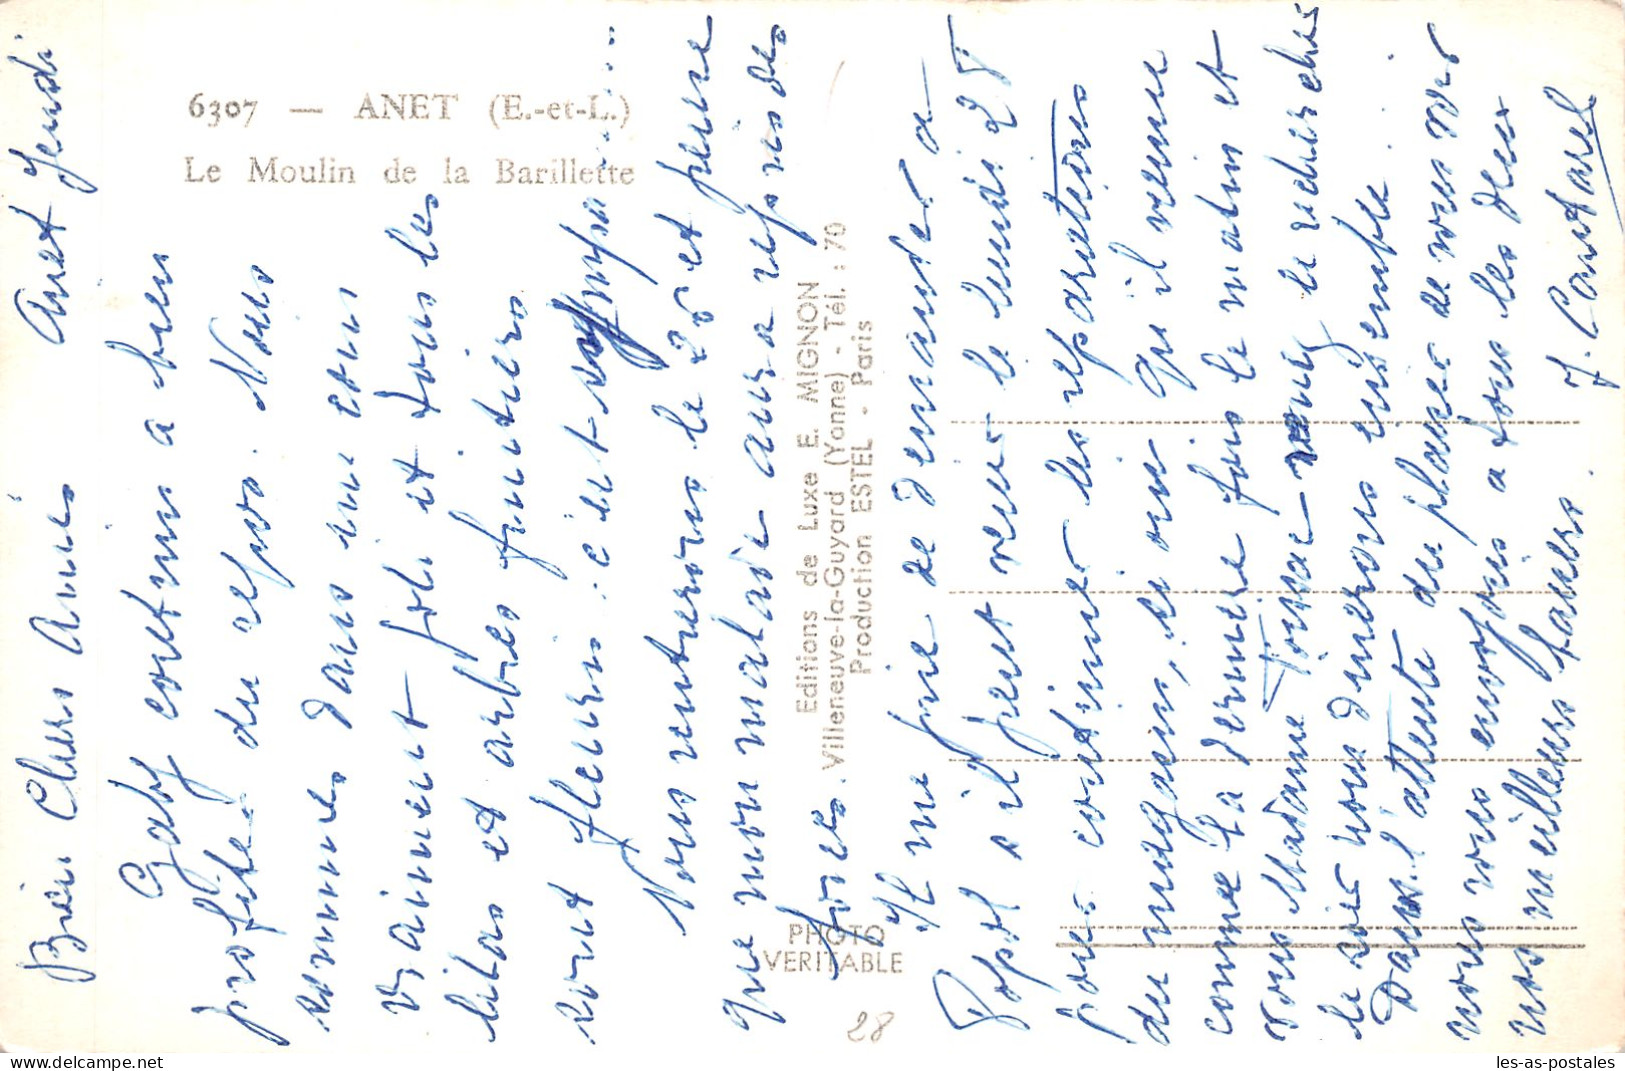 6307 — ANET (E.-et-L.)
Le Moulin de la Barillette
Anet Jeudi
Bien Chers Amis
Gaby continue à bien
profiter du repos. Nous
sommes dans un coin
vraiment joli et tous les
lilas et arbres fruitiers
sont fleuris : c'est sympa.....
Nous rentrerons le 25 et pense
que mon malade aura repris des
forces.
Il me prie de demander à
Popol s'il peut venir le lundi 28
pour continuer les réparations
du magasin, ou qu'il vienne
comme la dernière fois le matin et
vous Madame venez le rechercher
le soir nous dînerons ensemble.
Dans l'attente du plaisir de vous voir
nous vous envoyons à tous les deux
nos meilleurs baisers.
Editions de Luxe E. MIGNON
Villeneuve-la-Guyard (Yonne) - Tél. : 70
Production ESTEL - Paris
PHOTO
VERITABLE
28
les-as-postales